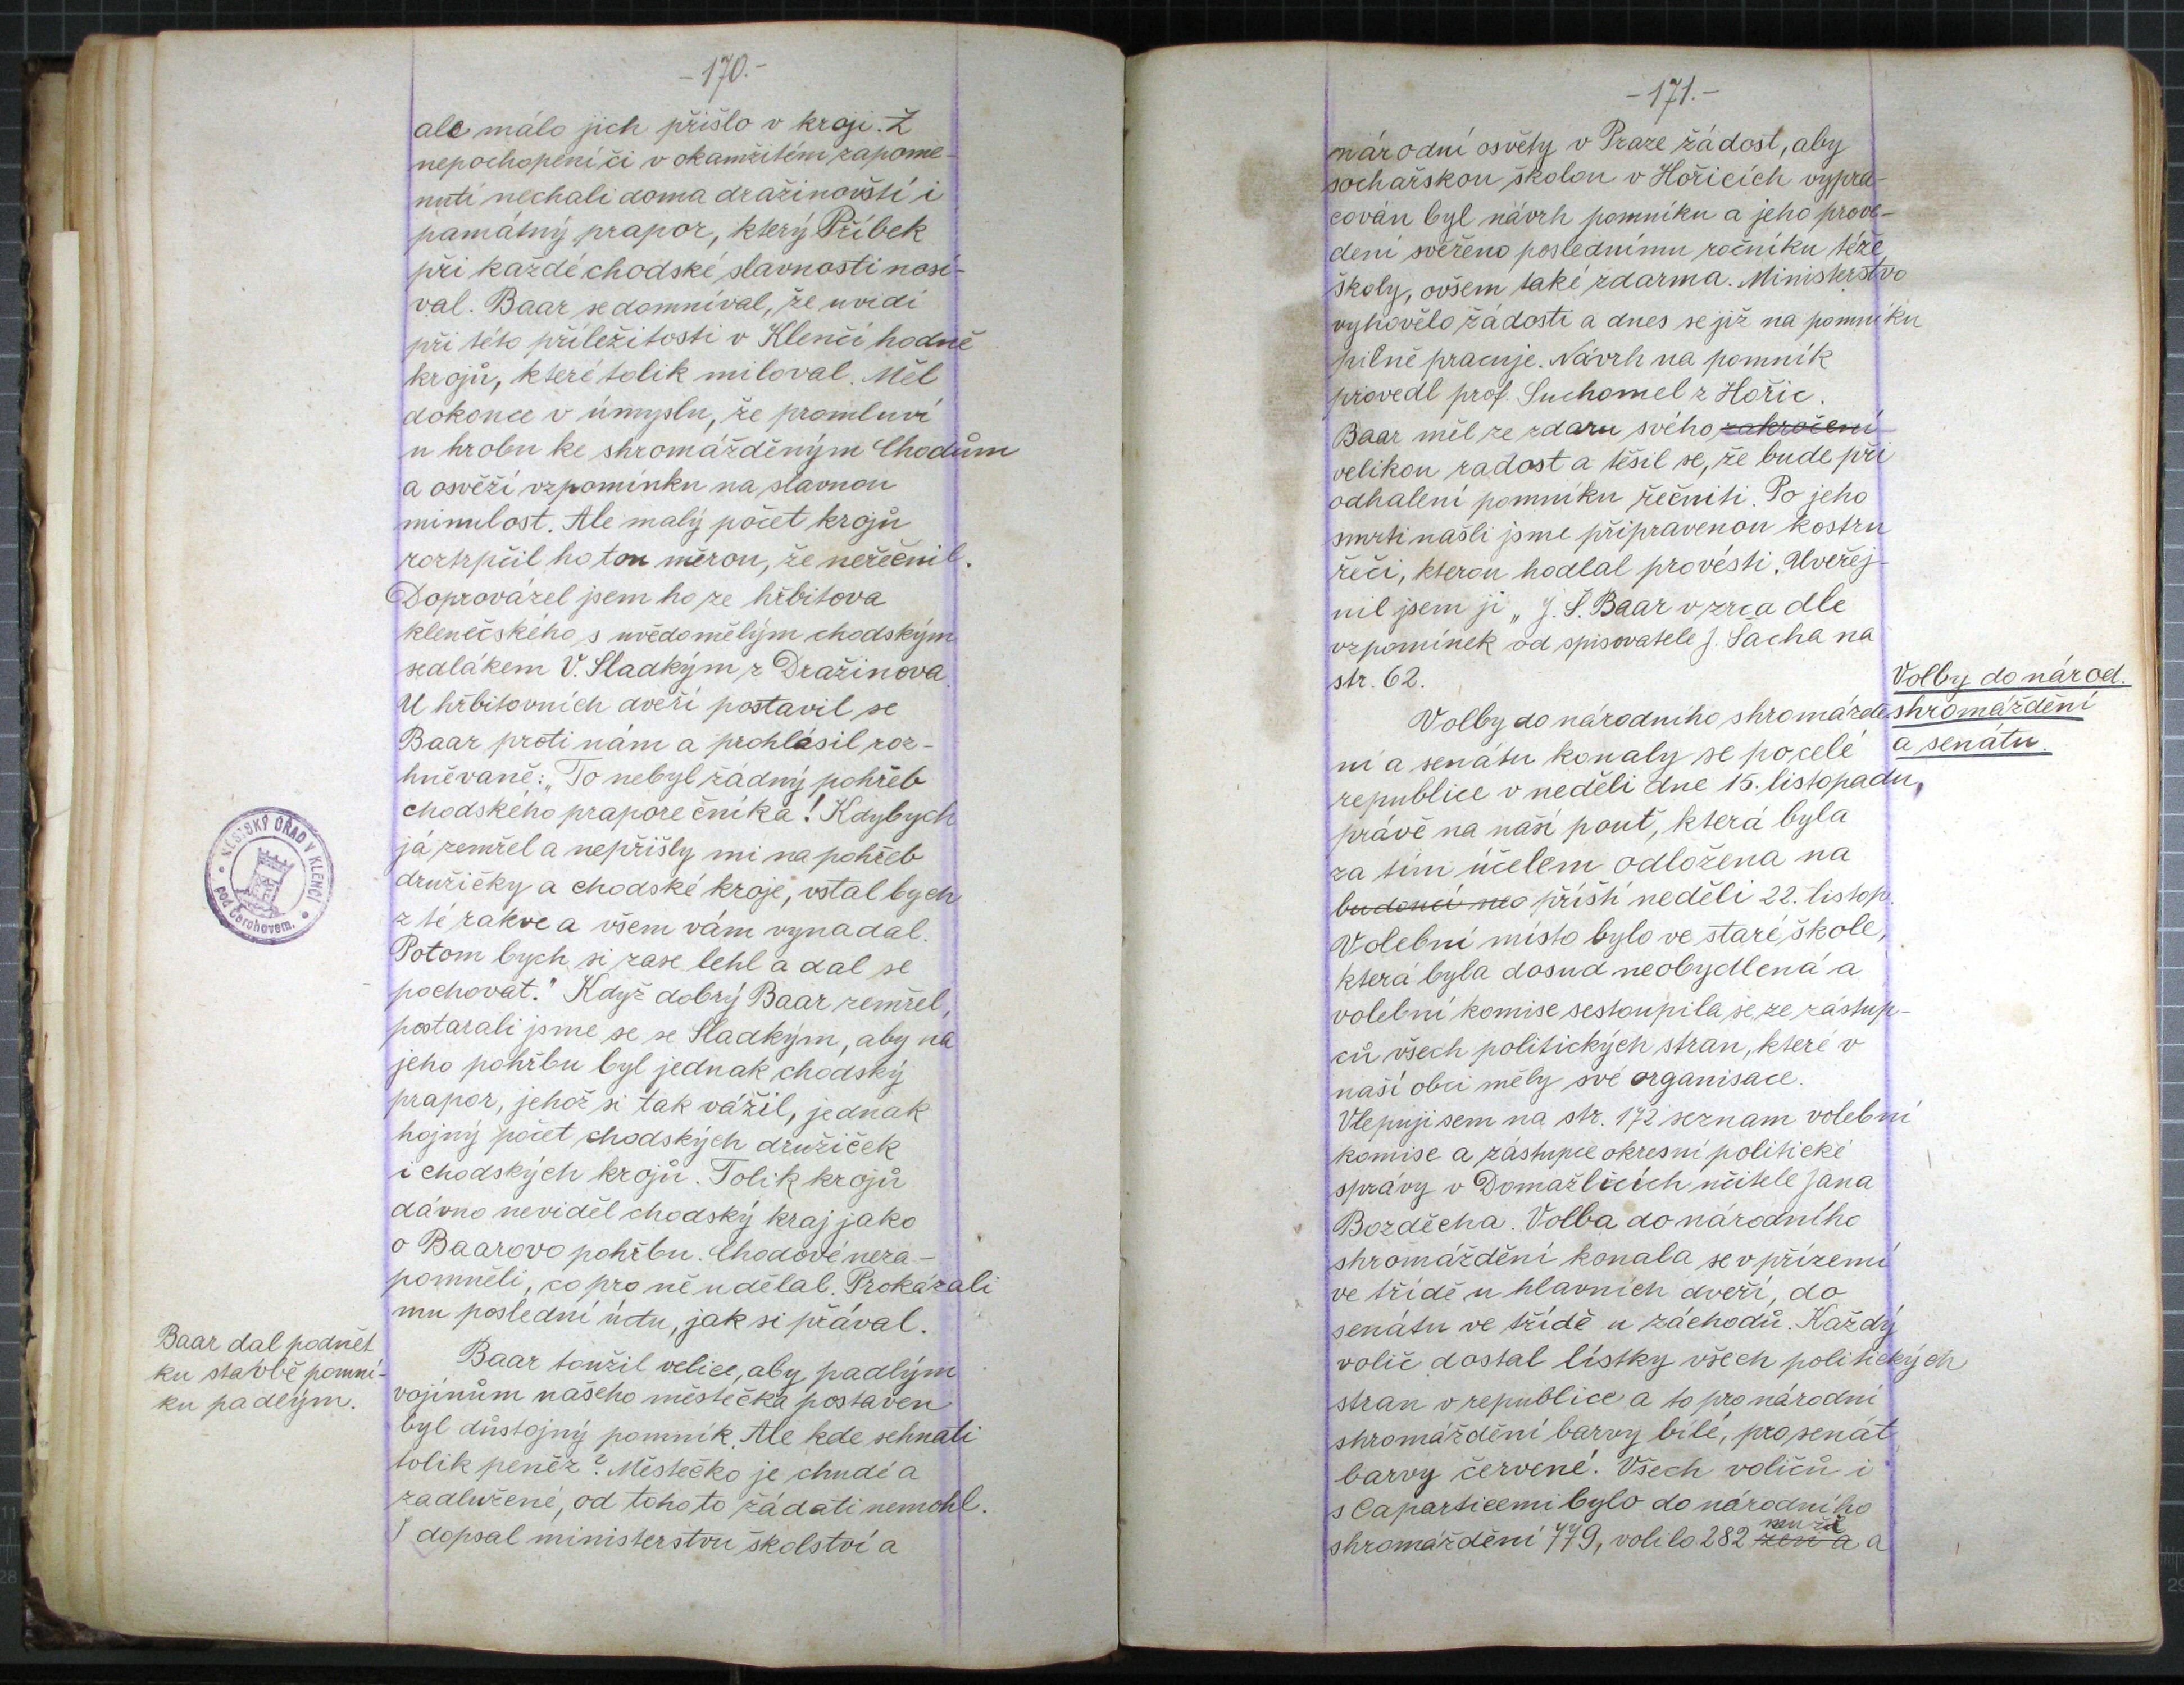 -170.-
ale málo jich přišlo v kroji. Z
nepochopení či v okamžitém zapome-
nutí nechali doma dražinovští i
památný prapor, který Příbek
při každé chodské slavnosti nosí-
val. Baar se domníval, že uvidí
při této příležitosti v Klenčí hodně
krojů, které tolik miloval. Měl
dokonce v úmyslu, že promluví
u hrobu ke shromážděným Chodům
a osvěží vzpomínku na slavnou
minulost. Ale malý počet krojů
roztrpčil ho tou měrou, že neřečnil.
Doprovázel jsem ho ze hřbitova
klenečského s uvědomělým chodským
sedlákem V. Sladkým z Dražinova.
U hřbitovních dveří postavil se
Baar proti nám a prohlásil roz-
hněvaně: „To nebyl žádný pohřeb
chodského praporečníka! Kdybych
já zemřel a nepřišly mi na pohřeb
družičky a chodské kroje, vstal bych
z té rakve a všem vám vynadal.
Potom bych si zase lehl a dal se
pochovat." Když dobrý Baar zemřel,
postarali jsme se se Sladkým, aby na
jeho pohřbu byl jednak chodský
prapor, jehož si tak vážil, jednak
hojný počet chodských družiček
i chodských krojů. Tolik krojů
dávno neviděl chodský kraj jako
o Baarovo pohřbu. Chodové neza-
pomněli, co pro ně udělal. Prokázali
mu poslední úctu, jak si přával.
Baar dal podnět
ku stavbě pomní-
ku padlým.
Baar toužil velice, aby padlým
vojínům našeho městečka postaven
byl důstojný pomník. Ale kde sehnati
tolik peněz? Městečko je chudé a
zadlužené, od toho to žádati nemohl.
I dopsal ministerstvu školství a
MĚSTSKÝ ÚŘAD V KLENČÍ
pod Čerchovem.
-171.-
národní osvěty v Praze žádost, aby
sochařskou školou v Hořicích vypra-
cován byl návrh pomníku a jeho prove-
dení svěřeno poslednímu ročníku téže
školy, ovšem také zdarma. Ministerstvo
vyhovělo žádosti a dnes se již na pomníku
pilně pracuje. Návrh na pomník
provedl prof. Suchomel z Hořic.
Baar měl ze zdaru svého zakročení
velikou radost a těšil se, že bude při
odhalení pomníku řečniti. Po jeho
smrti našli jsme připravenou kostru
řeči, kterou hodlal provésti. Uveřej-
nil jsem ji „J. Š. Baar v zrcadle
vzpomínek od spisovatele J. Šacha na
str. 62.
Volby do národ.
shromáždění
a senátu.
Volby do národního shromáždě
ní a senátu konaly se po celé
republice v neděli dne 15. listopadu,
právě na naší pouť, která byla
za tím účelem odložena na
budoucí neo příští neděli 22. listop.
Volební místo bylo ve staré škole,
která byla dosud neobydlená a
volební komise sestoupila se ze zástup-
ců všech politických stran, které v
naší obci měly své organisace.
Vlepuji sem na str. 172 seznam volební
komise a zástupce okresní politické
správy v Domažlicích učitele Jana
Bozděcha. Volba do národního
shromáždění konala se v přízemí
ve třídě u hlavních dveří, do
senátu ve třídě u záchodů. Každý
volič dostal lístky všech politických
stran v republice a to pro národní
shromáždění barvy bílé, pro senát
barvy červené. Všech voličů i
s Caparticemi bylo do národního
shromáždění 779, volilo 282 žen a a